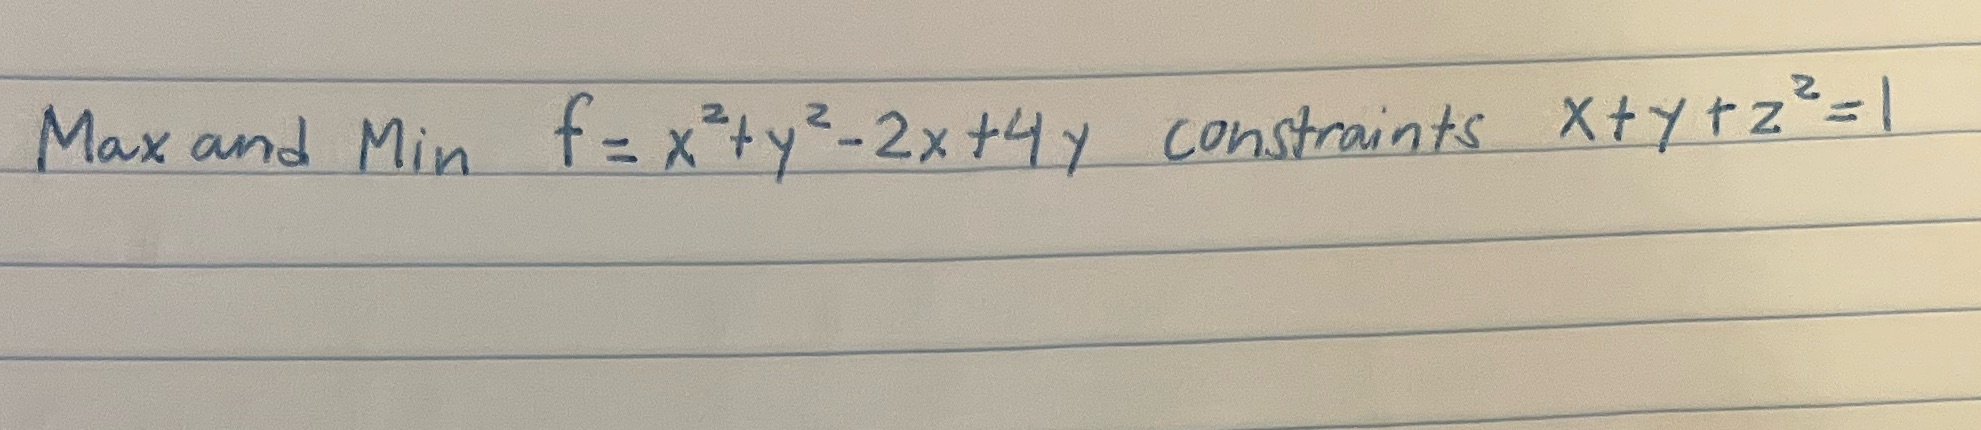 Max and Min f = x²+y²-2x+4y constraints x+y+z²=1